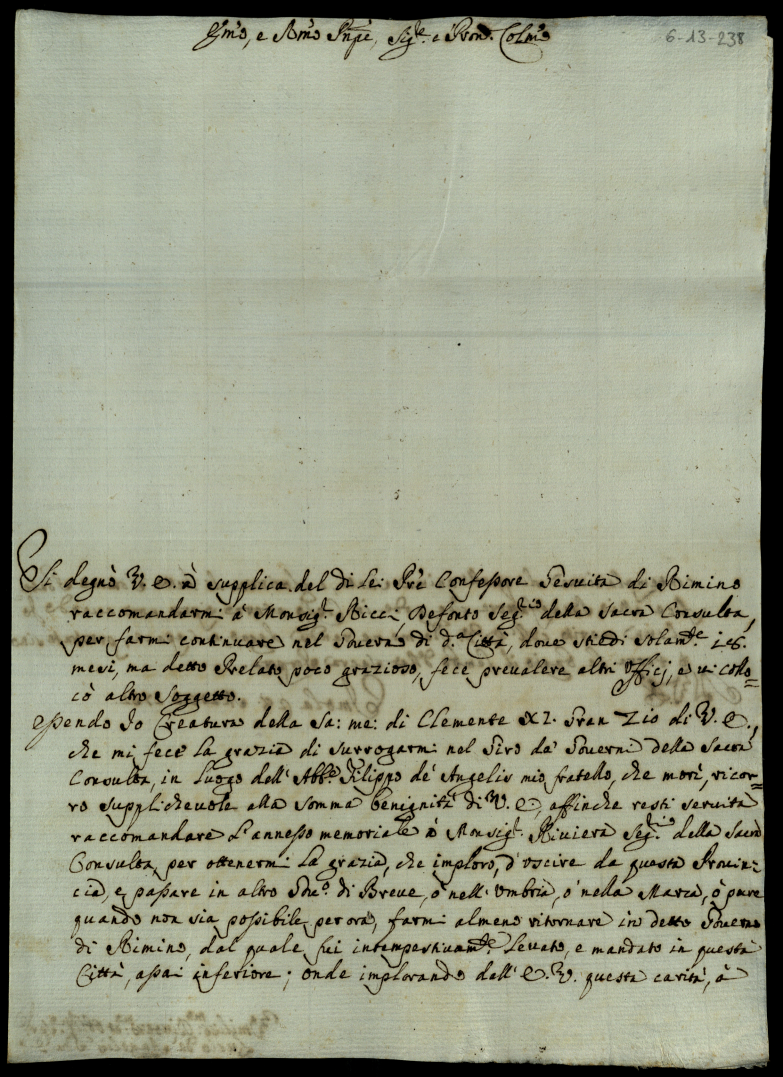 Em̃o, e Rm̃o Prn̄pe, Sigre. e Pron̄. Colm̃o
6-13-238
Si degnò V. E. à supplica del di Lei Prẽ Confessore Gesuita di Rimino
raccomandarmi à Monsigr. Ricci, Defonto Segrio. della Sacra Consulta,
per farmi continuare nel Governo di d.a Città, dove stiedi solamte. 16.
mesi, ma detto Prelato poco grazioso, fece prevalere altri Officj, e vi collo=
cò altro Soggetto.
Essendo Io Creatura della Sa: me: di Clemente XI. Gran Zio di V. E.,
che mi fece la grazia di surrogarmi nel Giro dà Governi della Sacra
Consulta, in luogo dell' Abbe. Filippo de' Angelis mio fratello, che morì, ricor=
ro supplichevole alla somma benignità di V. E., affinche resti servita
raccomandare l'annesso memoriale à Monsigr. Riviera Segrio. della Sacra
Consulta, per ottenermi la grazia, che imploro, d'uscire da questa Provin=
cia, e passare in altro Govo. di Breve, ò nell' Umbria, ò nella Marca, ò pure
quando non sia possibile per ora, farmi almeno ritornare in detto Governo
di Rimino, dal quale fui intempestivamte. levato, e mandato in questa
Città, assai inferiore; onde implorando dall' E. V. questa carità, à